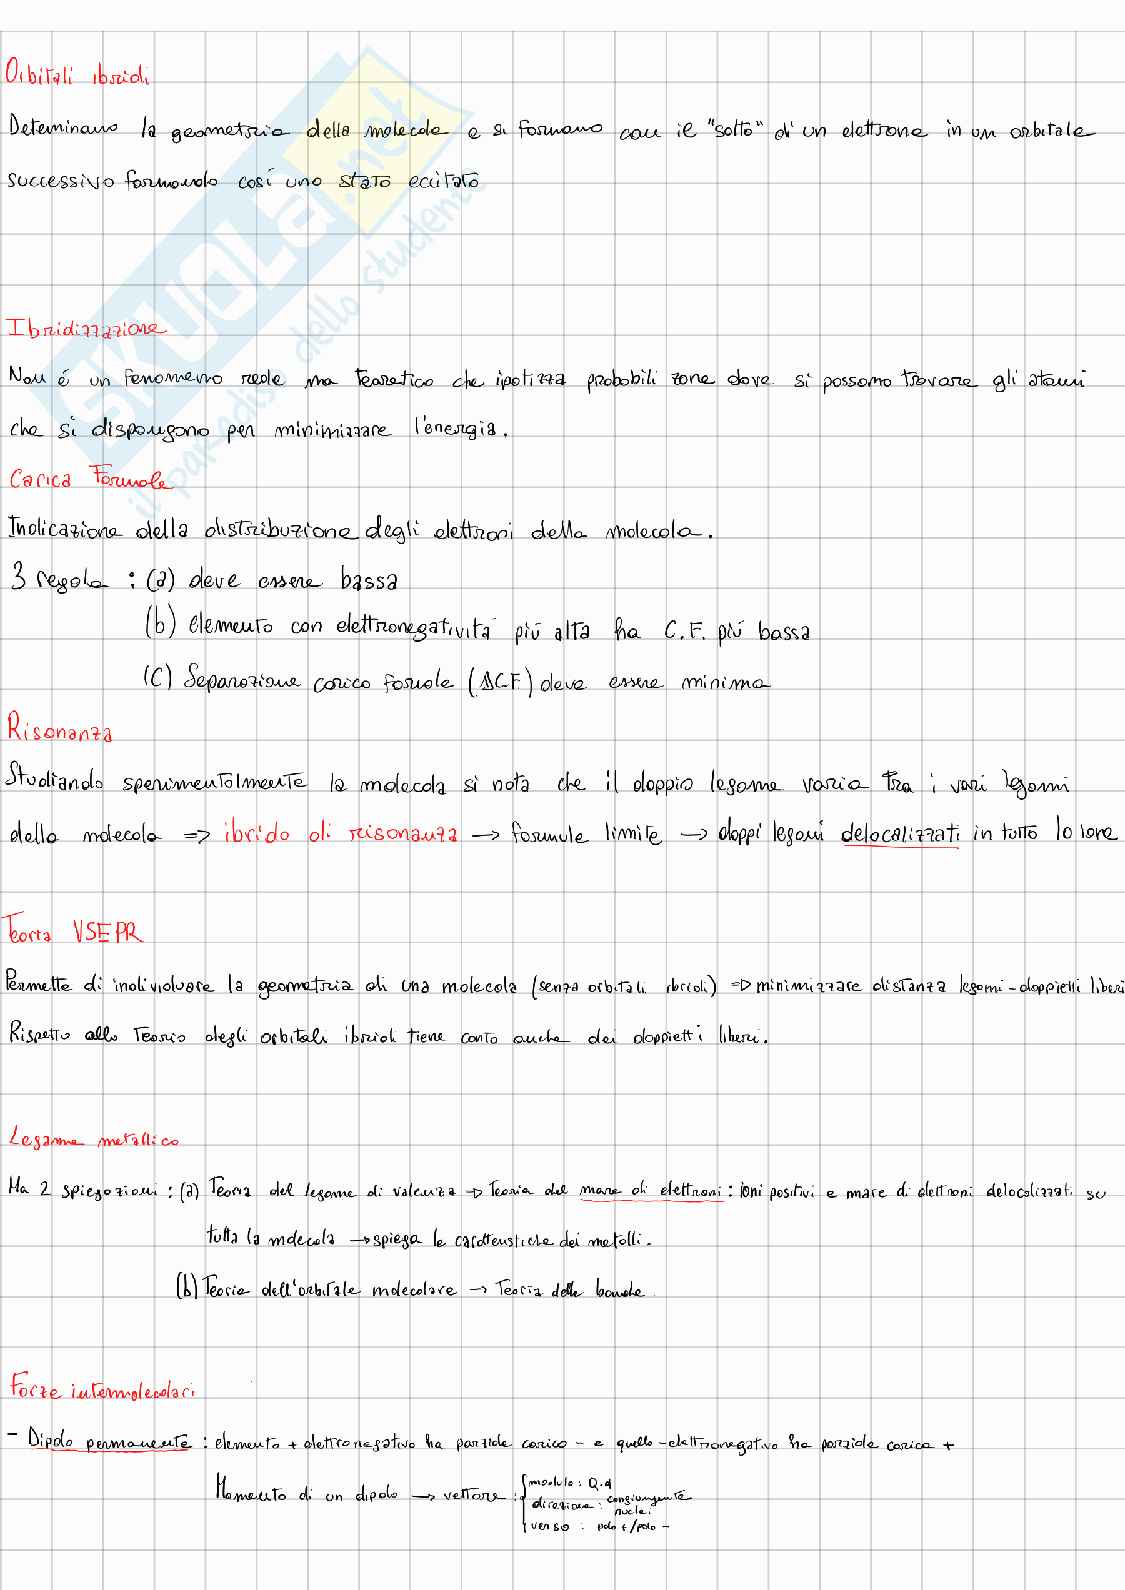 Orbitali ibridi
Determinano la geometria della molecola e si formano con il "salto" di un elettrone in un orbitale
successivo formando così uno stato eccitato
SKUOLA.net
il paradiso dello studente
Ibridizzazione
Non é un fenomeno reale ma teoretico che ipotizza probabili zone dove si possono trovare gli atomi
che si dispongono per minimizzare l'energia.
Carica Formale
Indicazione della distribuzione degli elettroni della molecola.
3 regole : (a) deve essere bassa
(b) elemento con elettronegatività più alta ha C.F. più bassa
(C) Separazione carica formale (ΔC.F.) deve essere minima
Risonanza
Studiando sperimentalmente la molecola si nota che il doppio legame varia tra i vari legami
della molecola => ibrido di risonanza → formule limite → doppi legami delocalizzati in tutto lo ione
Teoria VSEPR
Permette di individuare la geometria di una molecola (senza orbitali ibridi) => minimizzare distanza legami-doppietti liberi
Rispetto alla Teoria degli orbitali ibridi tiene conto anche dei doppietti liberi.
Legame metallico
Ha 2 spiegazioni : (a) Teoria del legame di valenza → Teoria del mare di elettroni : ioni positivi e mare di elettroni delocalizzati su
tutta la molecola → spiega le caratteristiche dei metalli.
(b) Teoria dell'orbitale molecolare → Teoria delle bande
Forze intermolecolari
- Dipolo permanente : elemento + elettronegativo ha parziale carica - e quello - elettronegativo ha parziale carica +
Momento di un dipolo → vettore : { modulo : Q.d
direzione : congiungente nuclei
verso : polo + / polo -